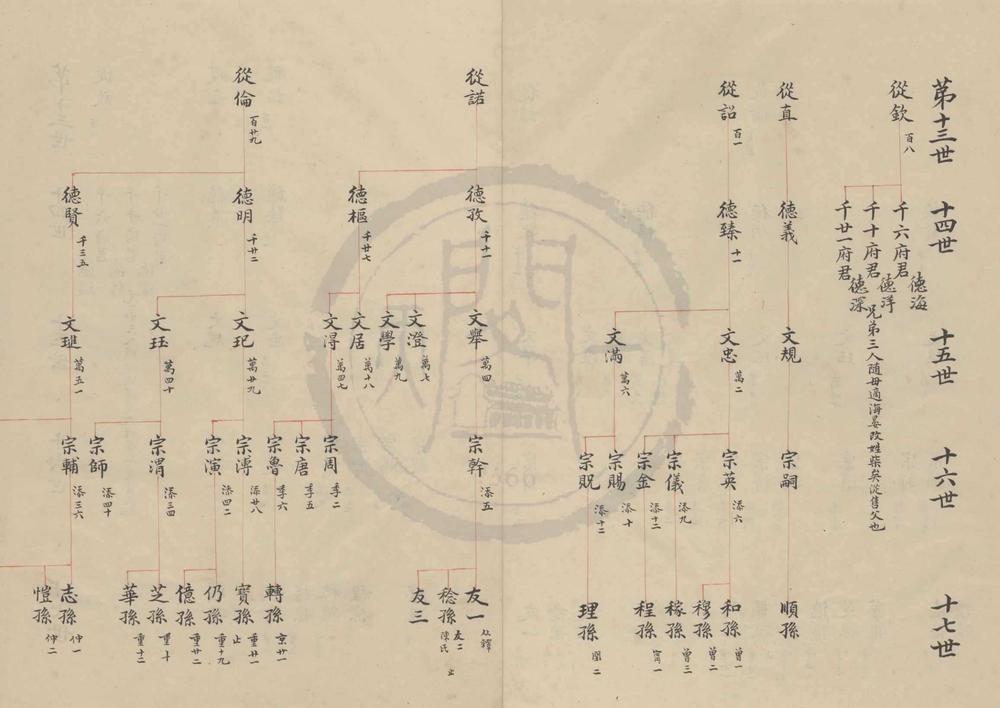 第十三世
十四世
十五世
十六世
十七世
從欽 百八
千六府君 德海
千十府君 德洋
千廿一府君 德深
兄弟三人随母適海晏改姓柴矣從售父也
從直
德義
文規
宗嗣
順孫
從詔 百一
德臻 十一
文忠 萬二
文滿 萬六
宗英 添六
宗儀 添九
宗金 添十二
宗賜 添十
宗貺 添十二
和孫 曾一
穆孫 曾二
稼孫 曾三
程孫 甯一
理孫 閏二
從諾
德孜 千十一
德樞 千廿七
文舉 萬四
文澄 萬七
文學 萬九
文居 萬十八
文淂 萬四七
宗幹 添五
宗周 季二
宗唐 季五
宗魯 季六
友一 从鐸
稔孫 友二 陳氏 止
友三
轉孫 京廿一
從倫 百廿九
德明 千廿二
德賢 千三五
文玘 萬廿九
文珏 萬四十
文璡 萬五一
宗漙 添廿八
宗演 添四二
宗渭 添三四
宗師 添四十
宗輔 添三六
寳孫 重廿一 止
仍孫 重十九
億孫 重廿二
芝孫 重十
華孫 重十二
志孫 仲一
愷孫 仲二